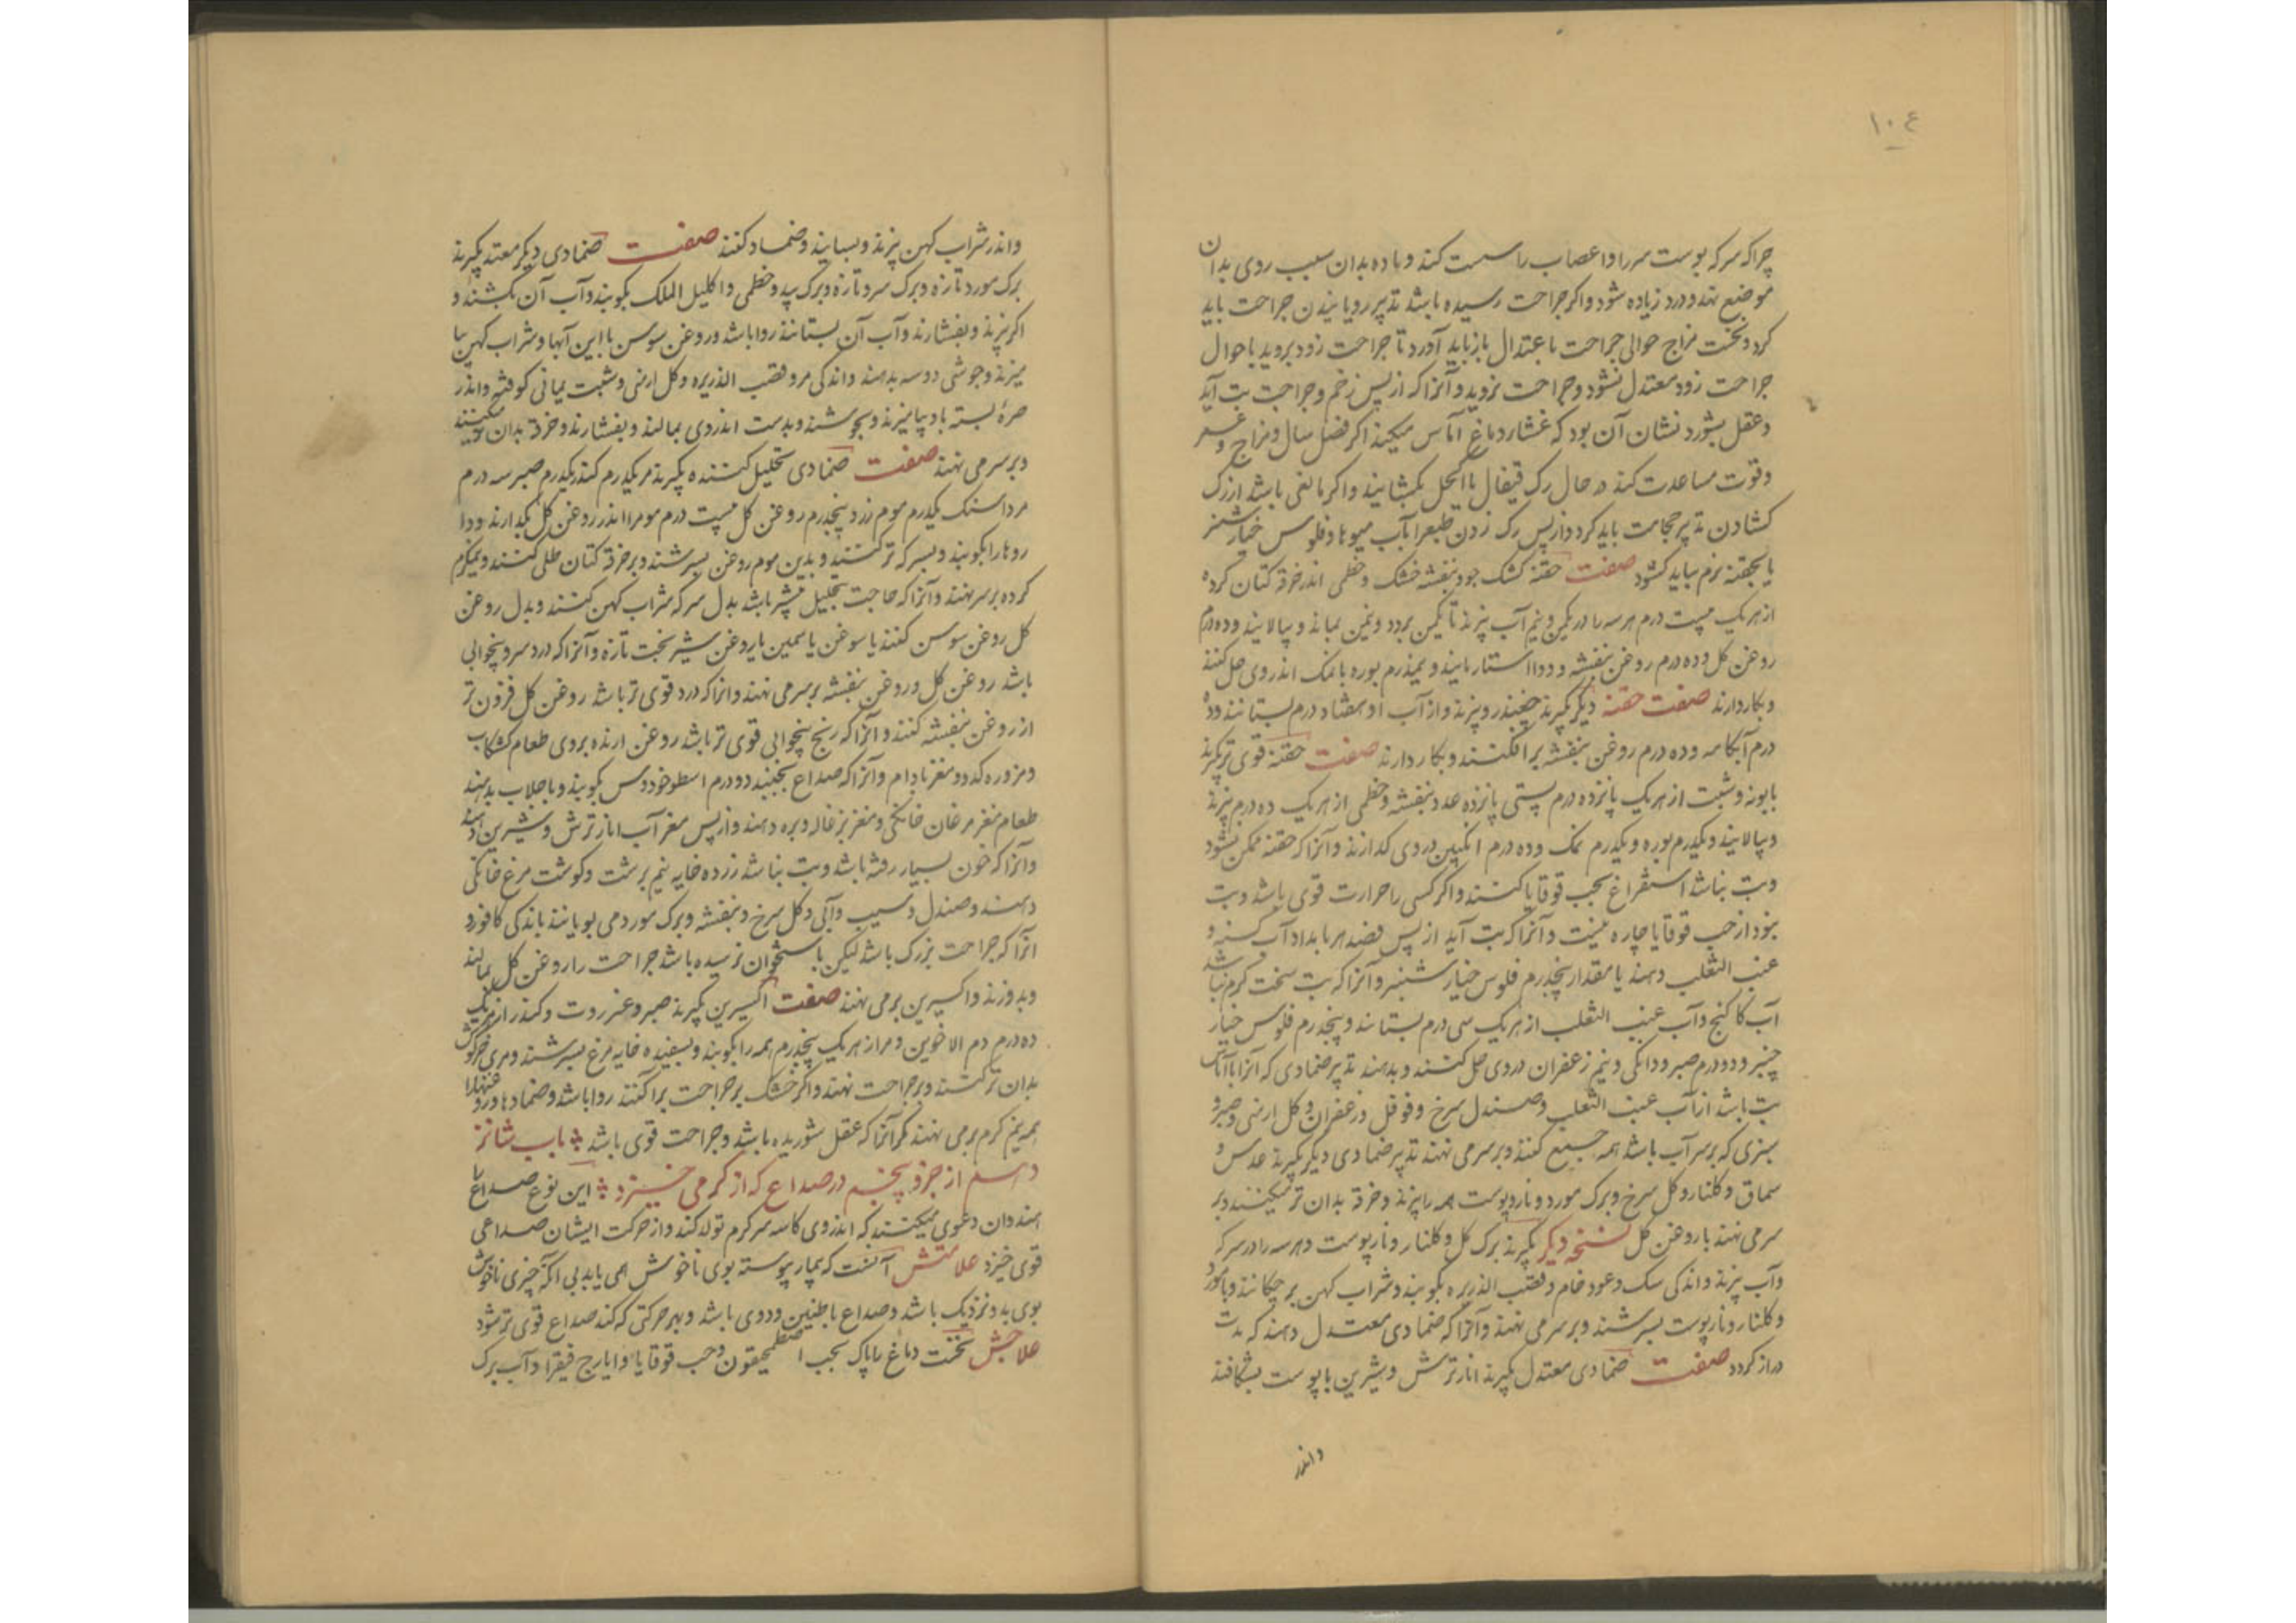 ۱۰۴
چرا که سرکه پوست سر را و اعصاب را سست کند و ماده بدان سبب روی بدان
موضع نهد و درد زیاده شود و اکر جراحت رسیده باشد تدبیر رویانیدن جراحت باید
کرد و نخست مزاج حوالی جراحت باعتدال باز باید آورد تا جراحت زود بروید با حوال
جراحت زود معتدل نشود و جراحت نروید و آنرا که از پس زخم و جراحت تب آید
و عقل بشورد نشان آن بود که غشاء دماغ آماس میکیرد اکر فصل سال و مزاج و عمر
و قوت مساعدت کند در حال رک قیفال یا اکحل بکشایند و اکر مانعی باشد از رک
کشادن تدبیر حجامت باید کرد و از پس رک زدن طبع را بآب میوها و فلوس خیارشنبر
یا بحقنه نرم بباید کشود صفت حقنه کشک جو و بنفشه خشک و خطمی اندر خرقه کتان کرده
از هر یک بیست درم هر سه را در یکمن و نیم آب بپزند تا یکمن برود و نیمن بماند و بپالایند و ده درم
روغن کل و ده درم روغن بنفشه و دو استار مانیذ و نیمدرم بوره با نمک اندر وی حل کنند
و بکار دارند صفت حقنه دیکر بکیرند چغندر و بپزند و از آب او هفتاد درم بستانند و ده
درم آبکامه و ده درم روغن بنفشه برافکنند و بکار دارند صفت حقنه قوی تر بکیرند
بابونه و شبت از هر یک پانزده درم پستی پانزده عدد بنفشه و خطمی از هر یک ده درم بپزند
و بپالایند و یکدرم بوره و یکدرم نمک و ده درم انکبین در وی کدازند و آنرا که حقنه ممکن نشود
و تب نباشد استفراغ بحب قوقایا کنند و اکر کسی را حرارت قوی باشد و تب
نبود از حب قوقایا چاره نیست و آنرا که تب آید از پس فصد هر بامداد آب کسنه و
عنب الثعلب دهند با مقدار پنجدرم فلوس خیارشنبر و آنرا که تب سخت کرم نباشد
آب کاکنج و آب عنب الثعلب از هر یک سی درم بستانند و پنجدرم فلوس خیار
چنبر و دو درم صبر و دانکی و نیم زعفران در وی حل کنند و بدهند تدبیر ضمادی که آنرا با آماس
تب باشد از آب عنب الثعلب و صندل سرخ و فوفل و زعفران و کل ارمنی و صبر و
سبزی که بر سر آب باشد همه جمع کنند و بر سر می نهند تدبیر ضمادی دیکر بکیرند عدس و
سماق و کلنار و کل سرخ و برک مورد و نارپوست همه را بپزند و خرقه بدان تر میکنند و بر
سر می نهند با روغن کل نسخه دیکر بکیرند برک کل و کلنار و نارپوست و هر سه را در سرکه
و آب بپزند و اندکی سک و عود خام و قصب الذریره بکوبند و شراب کهن بر چکانند و با مورد
و کلنار و نارپوست بسرشند و بر سر می نهند و آنرا که ضمادی معتدل دهند که مدت
دراز کردد صفت ضمادی معتدل بکیرند انار ترش و شیرین با پوست بشکافند
و اندر
و اندر شراب کهن بپزند و بسایند و ضماد کنند صفت ضمادی دیکر معتدل بکیرند
برک مورد تازه و برک سرو تازه و برک بید و خطمی و اکلیل الملک بکوبند و آب آن بکشند و
اکر بپزند و بفشارند و آب آن بستانند روا باشد و روغن سوسن با این آبها و شراب کهن بیا
میزند و جوشی دو سه بدهند و اندکی مر و قصب الذریره و کل ارمنی و شبت یمانی کوفته و اندر
صرۀ بسته باو بیامیزند و بجوشند و بدست اندر وی بمالند و بفشارند و خرقه بدان تر میکنند
و بر سر می نهند صفت ضمادی تحلیل کننده بکیرند مر یکدرم کندر یکدرم صبر سه درم
مرداسنک یکدرم موم زرد پنجدرم روغن کل بیست درم موم را اندر روغن کل بکدازند و دا
روها را بکوبند و بسرکه تر کنند و بدین موم روغن بسرشند و بر خرقه کتان طلی کنند و نیمکرم
کرده بر سر نهند و آنرا که حاجت بتحلیل بیشتر باشد بدل سرکه شراب کهن کنند و بدل روغن
کل روغن سوسن کنند یا سوغن یاسمین یا روغن شیر بخت تازه و آنرا که درد سر و بیخوابی
باشد روغن کل و روغن بنفشه بر سر می نهند و انرا که درد قوی تر باشد روغن کل فزون تر
از روغن بنفشه کنند و آنرا که رنج بیخوابی قوی تر باشد روغن ارنده بروی طعام کشکاب
و مزوره کدو و مغز بادام و آنرا که صداع بجنبد دو درم اسطوخودوس بکوبند و با جلاب بدهند
طعام مغز مرغان خانکی و مغز بزغاله و بره دهند و از پس مغز آب انار ترش و شیرین دهند
و آنرا که خون بسیار رفته باشد و تب نباشد زرده خایه نیم برشت و کوشت مرغ خانکی
دهند و صندل و سیب و آبی و کل سرخ و بنفشه و برک مورد می بویانند با اندکی کافور و
انرا که جراحت بزرک باشد لیکن باستخوان نرسیده باشد جراحت را روغن کل بمالند
و بدوزند و اکسیرین برمی نهند صفت اکسیرین بکیرند صبر و عنزروت و کندر از هر یک
ده درم دم الاخوین و مر از هر یک پنجدرم همه را بکوبند و بسفیده خایه مرغ بسرشند و موی خرکوش
بدان تر کنند و بر جراحت نهند و اکر خشک بر جراحت پراکنند روا باشد و ضمادها و روغنها را
همه نیم کرم برمی نهند مکر آنرا که عقل شوریده باشد و جراحت قوی باشد باب شانز
دهم از جزو پنجم در صداع که از کرم می خیزد این نوع صداع را
هندوان دعوی میکنند که اندر وی کاسه سر کرم تولد کند و از حرکت ایشان صداعی
قوی خیزد علامتش آنست که بیمار پیوسته بوی ناخوش همی یابد بی آنکه چیزی ناخوش
بوی بدو نزدیک باشد و صداع با طنین و دوی باشد و بهر حرکتی که کند صداع قوی تر شود
علاجش نخست دماغ را پاک بحب اصطمحیقون و حب قوقایا و ایارج فیقرا و آب برک